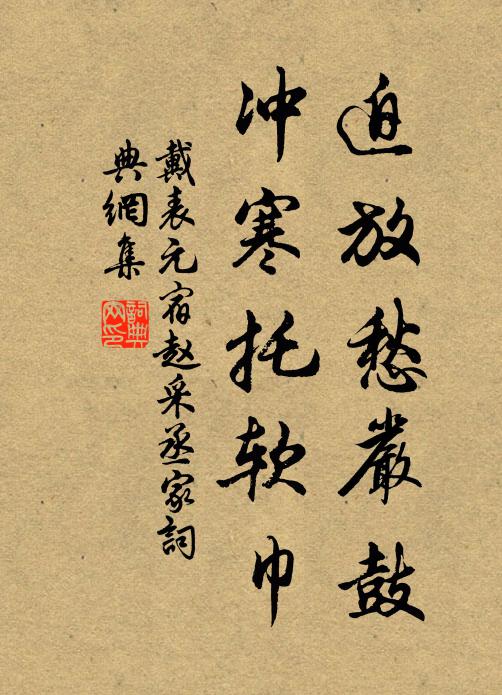 迫放愁嚴鼓
冲寒托软巾
戴表元宿赵采丞家詞
典網集
詞典
网印